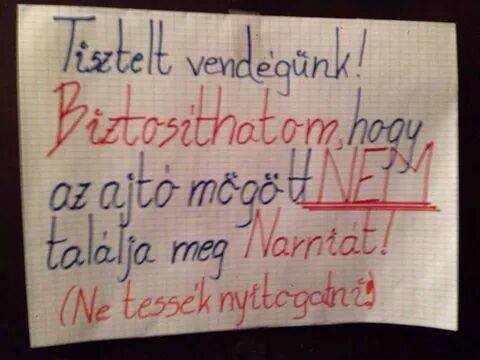 Tisztelt vendégünk!
Biztosíthatom, hogy
az ajtó mögött NEM
találja meg Narniát!
(Ne tessék nyitogatni!)